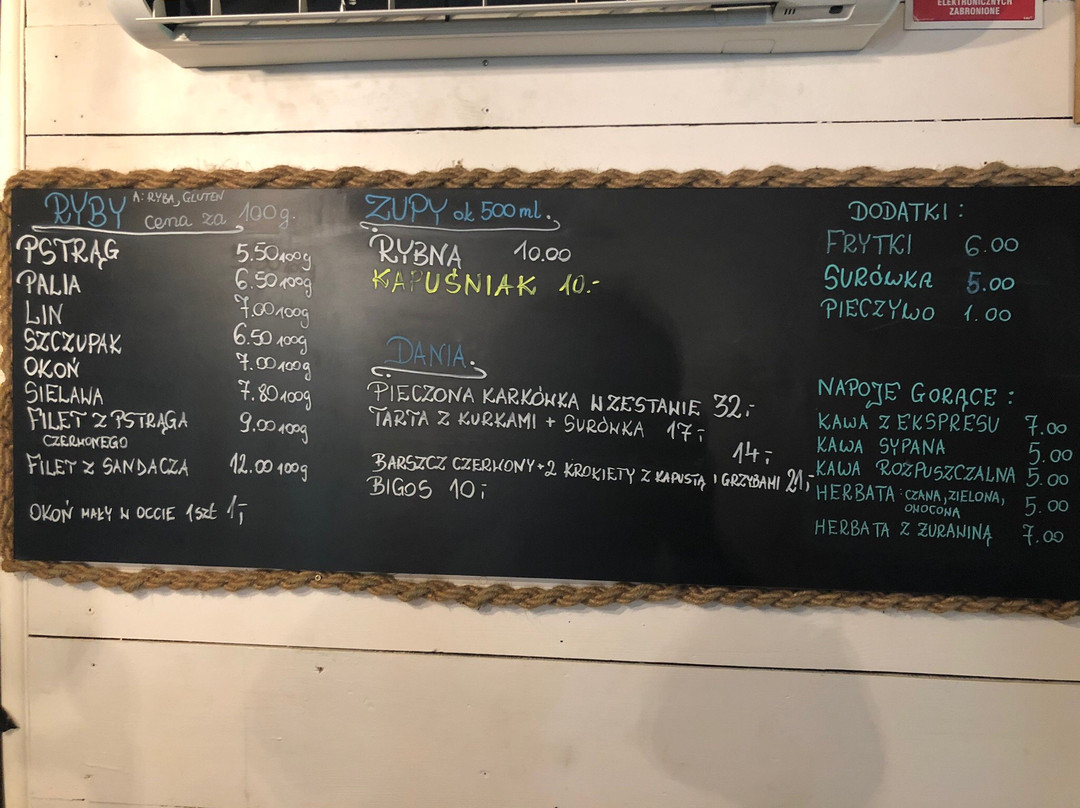 ELEKTRONICZNYCH
ZABRONIONE
RYBY A: RYBA, GLUTEN
cena za 100g.
PSTRĄG 5.50 100g
PALIA 6.50 100g
LIN 7.00 100g
SZCZUPAK 6.50 100g
OKOŃ 7.00 100g
SIELAWA 7.80 100g
FILET Z PSTRĄGA 9.00 100g
CZERWONEGO
FILET Z SANDACZA 12.00 100g
OKOŃ MAŁY W OCCIE 1szt 1,-
ZUPY ok 500 ml.
RYBNA 10.00
KAPUŚNIAK 10.-
DANIA.
PIECZONA KARKÓWKA W ZESTAWIE 32,-
TARTA Z KURKAMI + SURÓWKA 17,-
14,-
BARSZCZ CZERWONY + 2 KROKIETY Z KAPUSTĄ I GRZYBAMI 21,-
BIGOS 10,-
DODATKI:
FRYTKI 6.00
SURÓWKA 5.00
PIECZYWO 1.00
NAPOJE GORĄCE:
KAWA Z EKSPRESU 7.00
KAWA SYPANA 5.00
KAWA ROZPUSZCZALNA 5.00
HERBATA: CZANA, ZIELONA, 5.00
OWOCOWA
HERBATA Z ŻURAWINĄ 7.00